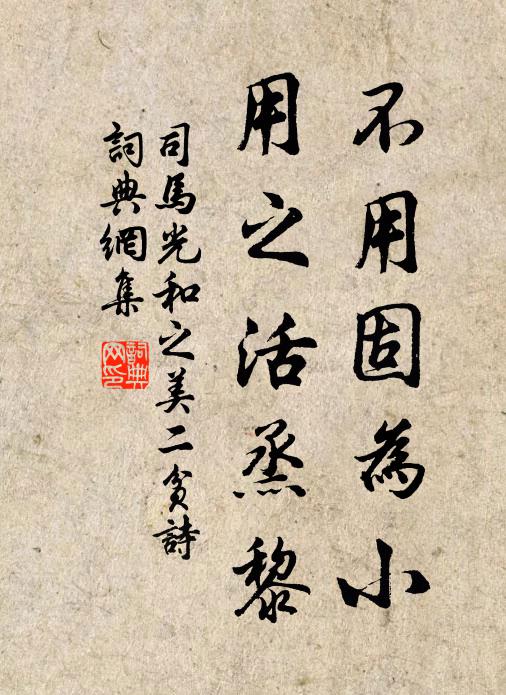 不用固為小
用之活烝黎
司馬光和之美二貧詩
詞典網集
詞典
网印